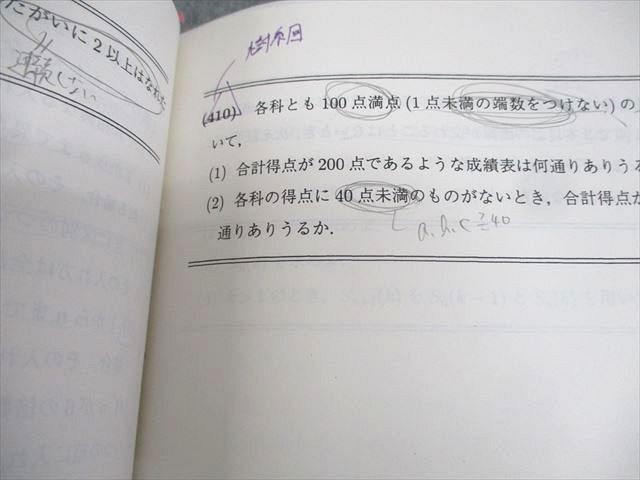 たがいに2以上はなれた
連続しない
樹系図
(410) 各科とも 100 点満点 (1 点未満の端数をつけない) の
いて,
(1) 合計得点が 200 点であるような成績表は何通りありうる
(2) 各科の得点に 40 点未満のものがないとき, 合計得点が
通りありうるか.
a, b, c ≧ 40